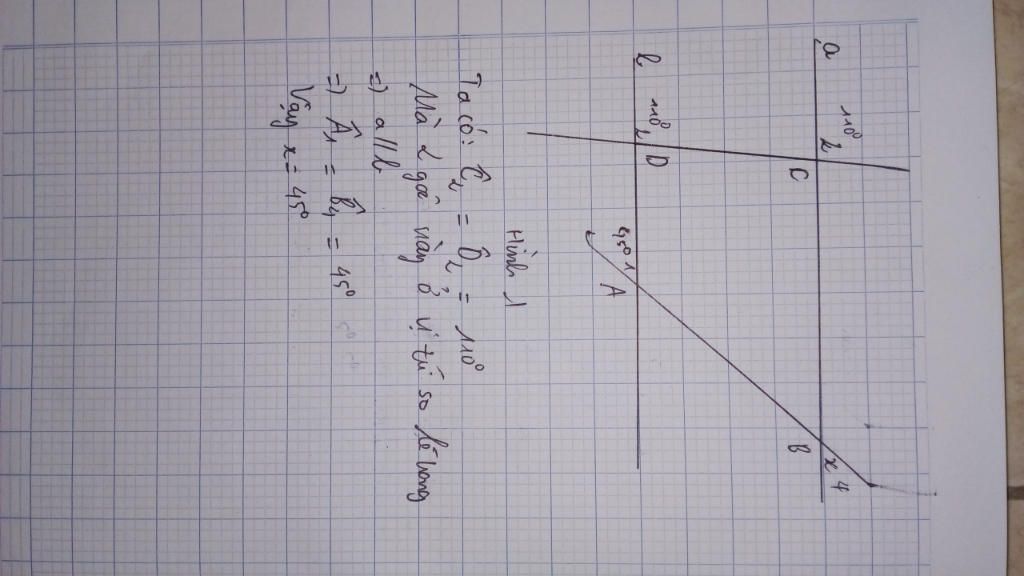 a 110° 2 x 4
C B
b 110° 2 D 45° 1
A
Hình 1
Ta có: Ĉ2 = D̂2 = 110°
Mà 2 góc này ở vị trí so lê trong
=) a//b
=) Â1 = B̂4 = 45°
Vậy x = 45°